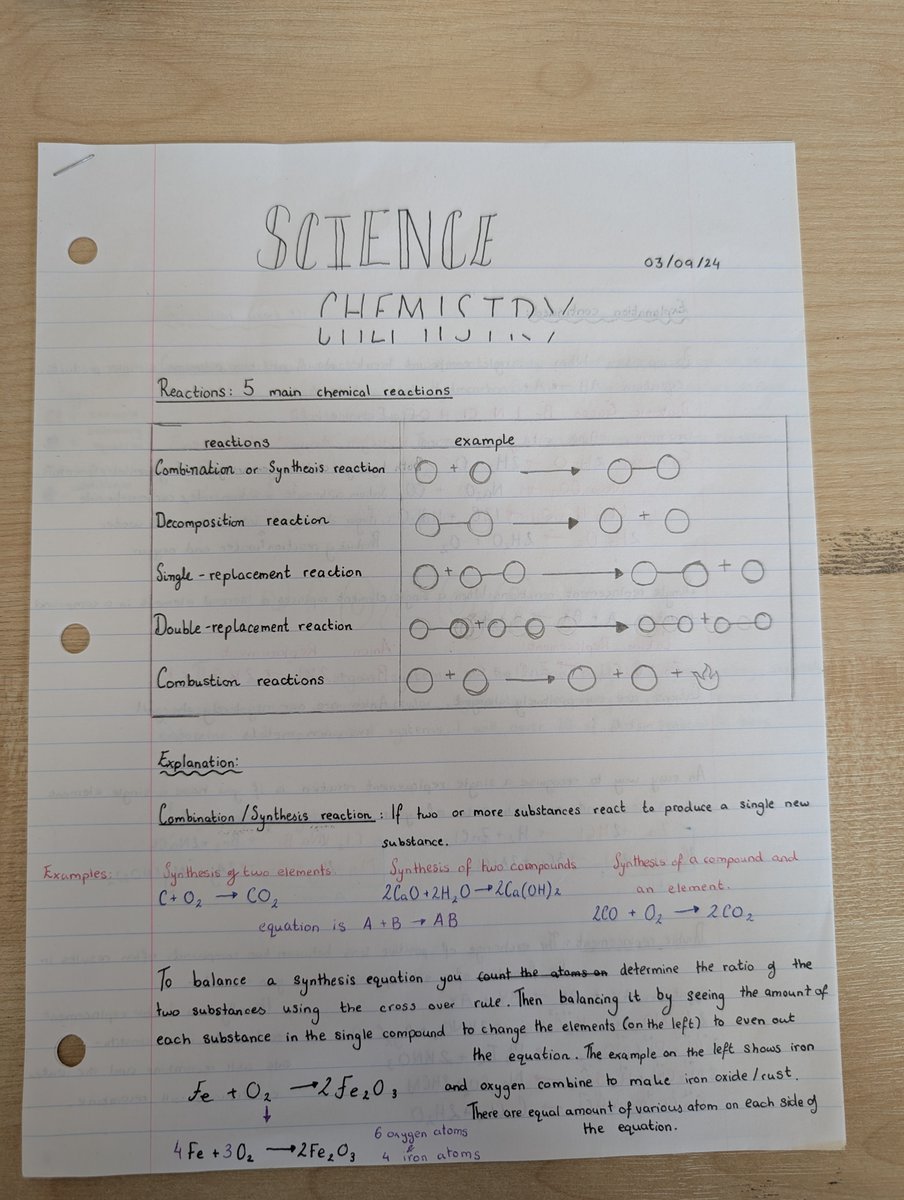 SCIENCE
03/09/24
CHEMISTRY
Reactions: 5 main chemical reactions
reactions example
Combination or Synthesis reaction + →
Decomposition reaction → +
Single-replacement reaction + → +
Double-replacement reaction + → +
Combustion reactions + → + +
Explanation:
Combination/Synthesis reaction: If two or more substances react to produce a single new
substance.
Examples: Synthesis of two elements Synthesis of two compounds Synthesis of a compound and
an element.
C + O₂ → CO₂ 2CaO + 2H₂O → 2Ca(OH)₂ 2CO + O₂ → 2CO₂
equation is A + B → AB
To balance a synthesis equation you count the atoms on determine the ratio of the
two substances using the cross over rule. Then balancing it by seeing the amount of
each substance in the single compound to change the elements (on the left) to even out
the equation. The example on the left shows iron
Fe + O₂ → 2Fe₂O₃ and oxygen combine to make iron oxide/rust.
There are equal amount of various atom on each side of
the equation.
↓
4Fe + 3O₂ → 2Fe₂O₃ 6 oxygen atoms
& 4 iron atoms